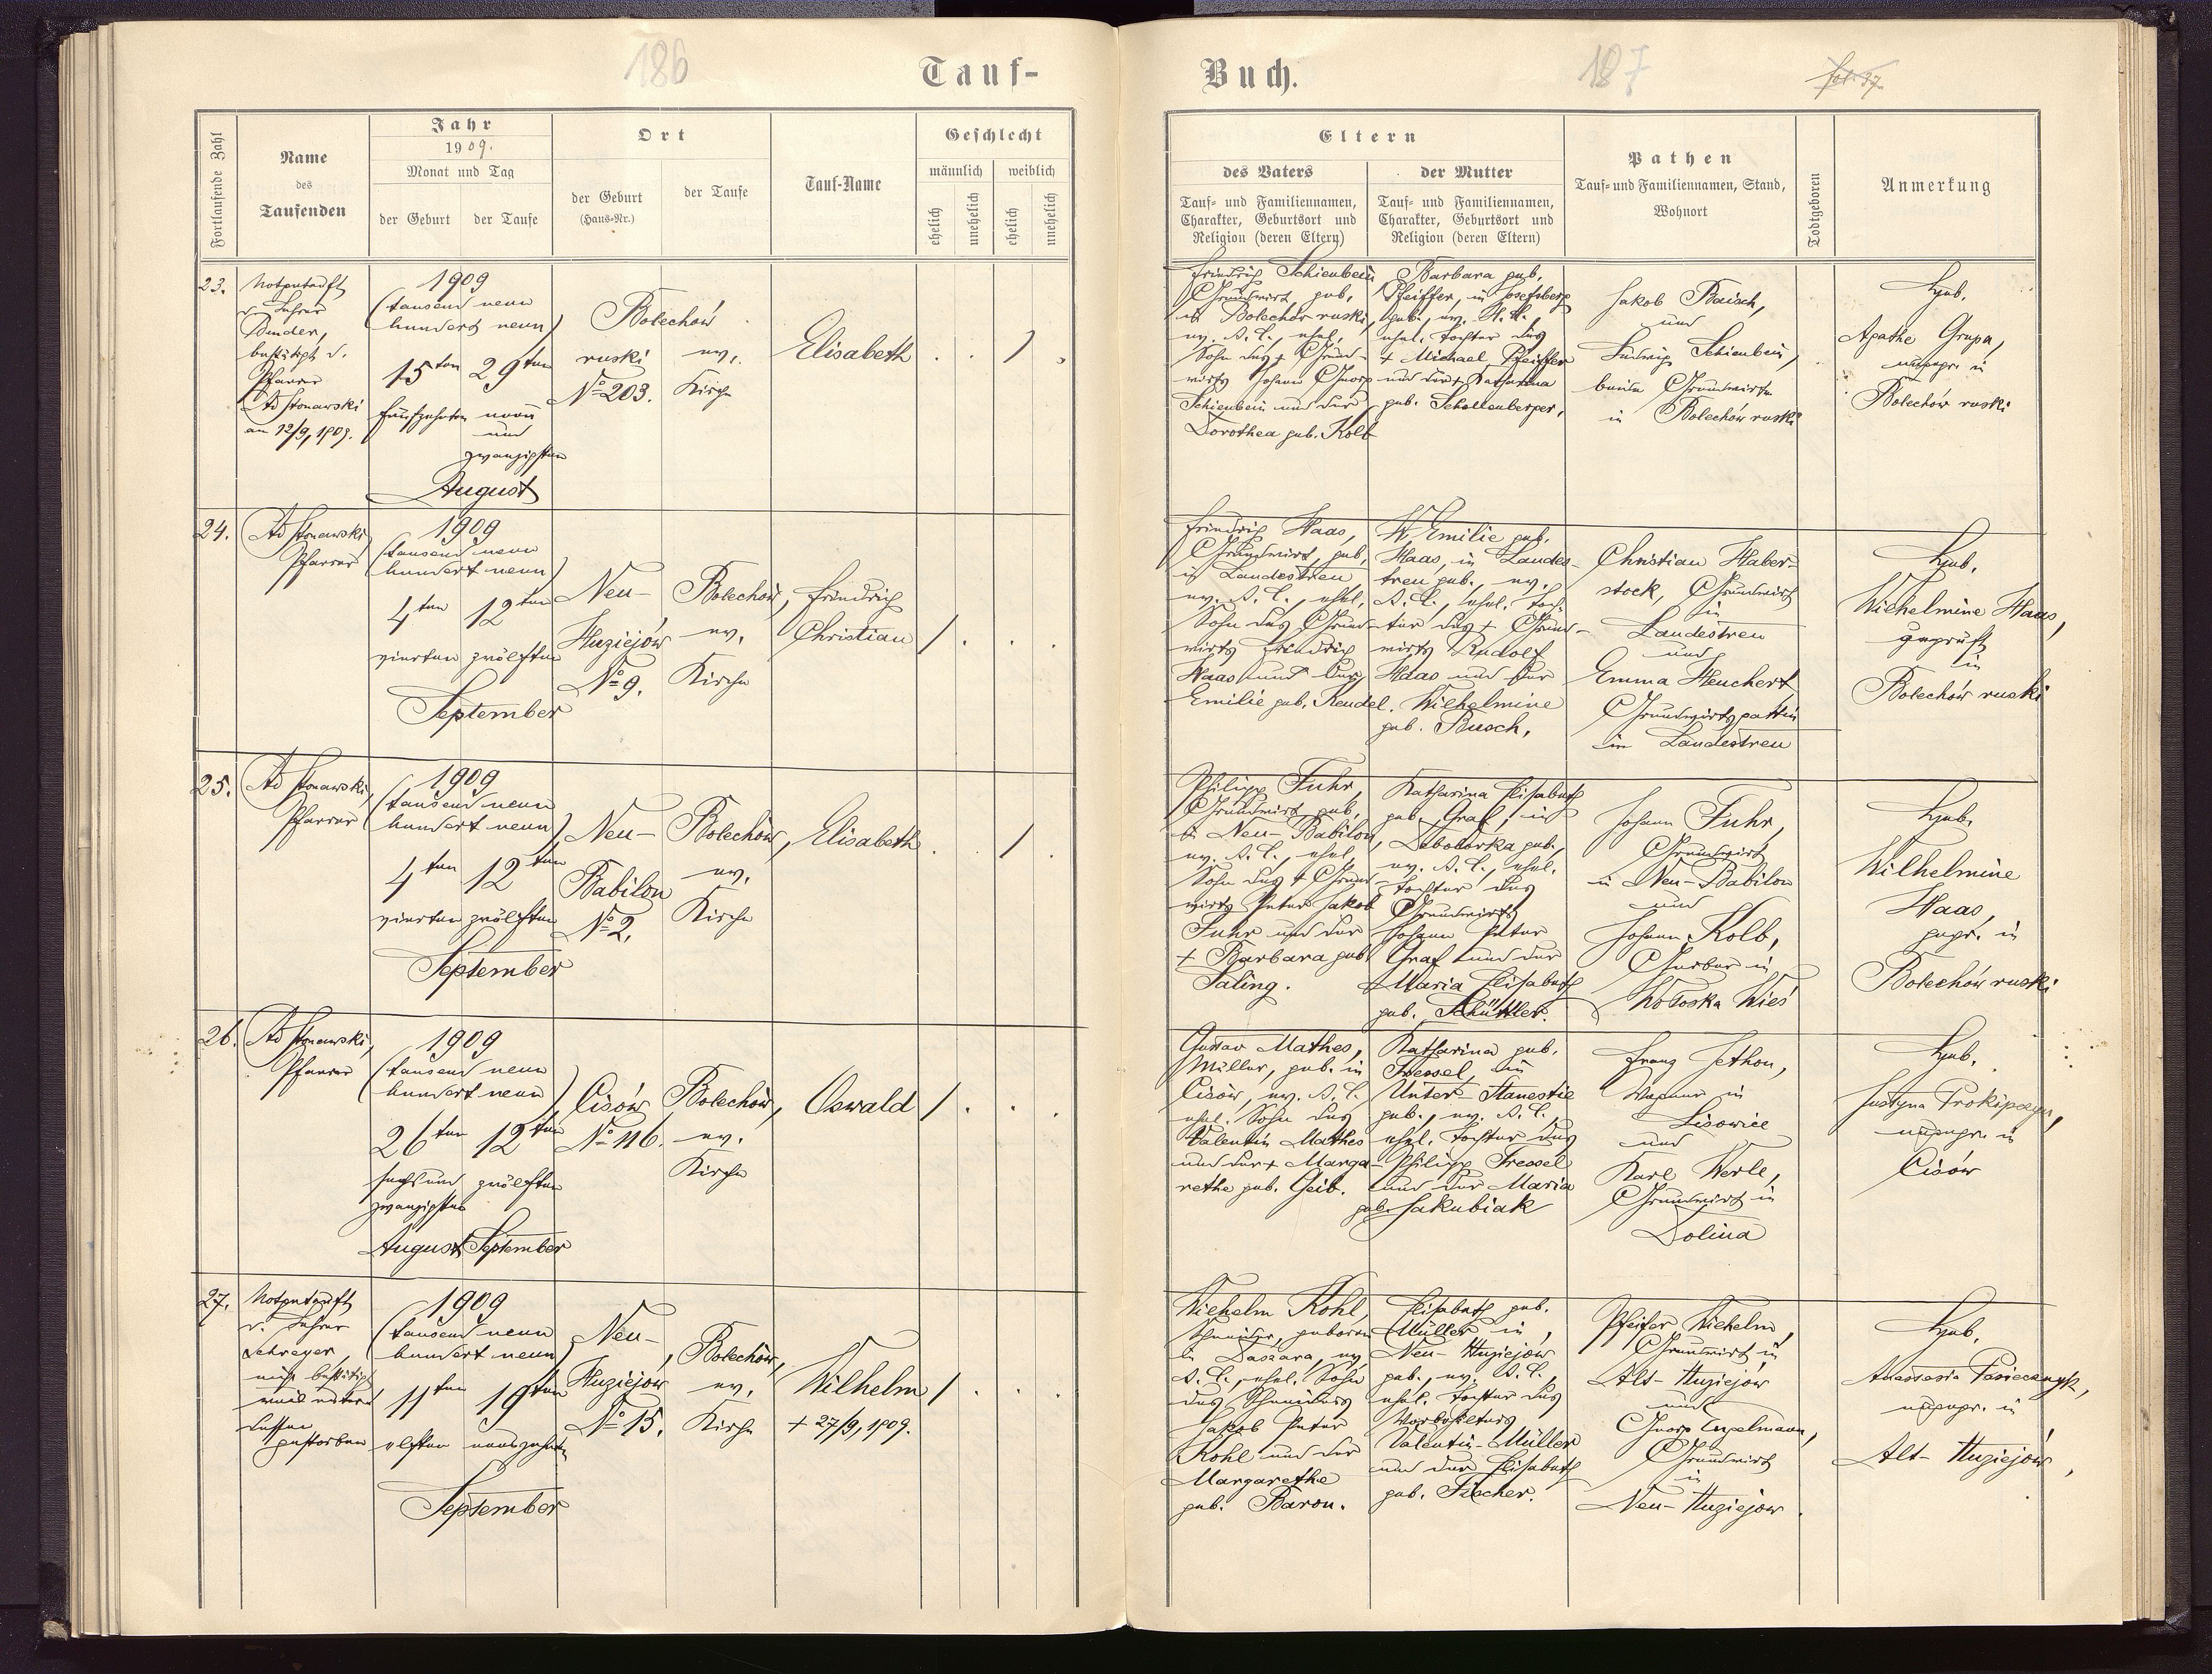 186
Tauf-
Fortlaufende Zahl
Name
des
Taufenden
Jahr
1909.
Monat und Tag
der Geburt
der Taufe
Ort
der Geburt
(Haus-Nr.)
der Taufe
Tauf-Name
Geschlecht
männlich
weiblich
ehelich
unehelich
ehelich
unehelich
23.
Notgetauft
v. Lehrer
Binder,
bestätigt v.
Pfarrer
am 12/9, 1909.
1909
(tausend neun
hundert neun)
15ten 29ten
fünfzehnten neun
und
zwanzigsten
August
Bolechów
ruski
No 203.
ev.
Kirche
Elisabeth
. . 1 .
24.
Pfarrer
1909
(tausend neun
hundert neun)
4ten 12ten
vierten zwölften
September
Neu-
Huziejów
No 9.
Bolechów,
ev.
Kirche
Friedrich
Christian
1 . . .
25.
Pfarrer
1909
(tausend neun
hundert neun)
4ten 12ten
vierten zwölften
September
Neu-
Babilon
No 2.
Bolechów,
ev.
Kirche
Elisabeth
. . 1 .
26.
Pfarrer
1909
(tausend neun
hundert neun)
26ten 12ten
sechsund zwölften
zwanzigsten
August September
Cisów
No 116.
Bolechów,
ev.
Kirche
Oswald
1 . . .
27.
Notgetauft
v. Lehrer
Schreyer,
nicht bestätigt
weil unter
dessen
gestorben
1909
(tausend neun
hundert neun)
11ten 19ten
elften neunzehnten
September
Neu-
Huziejów
No 15.
Bolechów,
ev.
Kirche
Wilhelm
+ 27/9, 1909.
1 . . .
Buch.
187
fol. 37
Eltern
des Vaters
Tauf- und Familiennamen,
Charakter, Geburtsort und
Religion (deren Eltern)
der Mutter
Tauf- und Familiennamen,
Charakter, Geburtsort und
Religion (deren Eltern)
Pathen
Tauf- und Familiennamen, Stand,
Wohnort
Todtgeboren
Anmerkung
Friedrich Schienbein
Grundwirt, geb.
in Bolechów ruski,
ev. A. C., ehel.
Sohn des + Grund-
wirts Johann Georg
Schienbein und der
Dorothea geb. Kolb
Barbara geb.
Pfeiffer, in Josefsberg
geb., ev. H. C.,
ehel. Tochter des
+ Michael Pfeiffer
und der + Katharina
geb. Schollenberger.
Jakob Baisch,
und
Ludwig Schienbein,
beide Grundwirte
in Bolechów ruski
Hgeb.
Agathe Grega,
ungepr. in
Bolechów ruski
Friedrich Haas,
Grundwirt, geb.
in Landestreu,
ev. A. C., ehel.
Sohn des Grund-
wirts Friedrich
Haas und der
Emilie geb. Rendel.
W. Emilie geb.
Haas, in Landes-
treu geb., ev.
A. C., ehel. Toch-
ter des + Grund-
wirts Rudolf
Haas und der
Wilhelmine
geb. Busch.
Christian Haber-
stock, Grundwirt
in
Landestreu
und
Emma Heuchert
Grundwirtsgattin
in Landestreu
Hgeb.
Wilhelmine Haas,
geprüft
in
Bolechów ruski
Philipp Fuhr,
Grundwirt, geb.
in Neu-Babilon,
ev. A. C., ehel.
Sohn des + Grund-
wirts Peter Jakob
Fuhr und der
+ Barbara geb.
Saling.
Katharina Elisabeth
geb. Graf, in
Debolówka geb.,
ev. A. C., ehel.
Tochter des
Grundwirts
Johann Peter
Graf und der
Maria Elisabeth
geb. Schüttler.
Johann Fuhr,
Grundwirt
in Neu-Babilon
und
Johann Kolb,
Gerber in
Wołoska Wieś
Hgeb.
Wilhelmine
Haas,
gepr. in
Bolechów ruski
Gustav Mathes,
Müller, geb. in
Cisów, ev. A. C.
ehel. Sohn des
Valentin Mathes
und der + Marga-
rethe geb. Geib.
Katharina geb.
Fressel, in
Unter Stanestie
geb., ev. A. C.,
ehel. Tochter des
Philipp Fressel
und der Maria
geb. Jakubiak
Franz Jethon,
Wagner in
Lisowice
und
Karl Werle,
Grundwirt in
Dolina
Hgeb.
ungepr. in
Cisów
Wilhelm Kohl,
Schneider, geboren
in Daszawa, ev.
A. C., ehel. Sohn
des Schneiders
Jakob Peter
Kohl und der
Margarethe
geb. Baron.
Elisabeth geb.
Müller in
Neu-Huziejów
geb., ev. A. C.,
ehel. Tochter des
Valentin Müller
und der Elisabeth
geb. Fischer.
Pfeifer Wilhelm,
Grundwirt in
Alt-Huziejów
und
Georg Engelmann,
Grundwirt
in
Neu-Huziejów.
Hgeb.
ungepr. in
Alt-Huziejów,